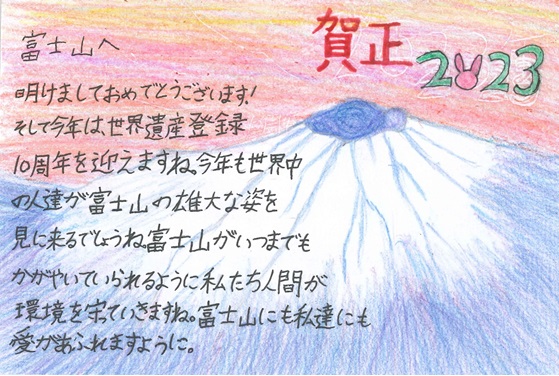 富士山へ
賀正
2023
明けましておめでとうございます!
そして今年は、世界遺産登録
10周年を迎えますね。今年も世界中
の人達が富士山の雄大な姿を
見に来るでしょうね。富士山がいつまでも
かがやいていられるように私たち人間が
環境を守っていきますね。富士山にも私達にも
愛があふれますように。